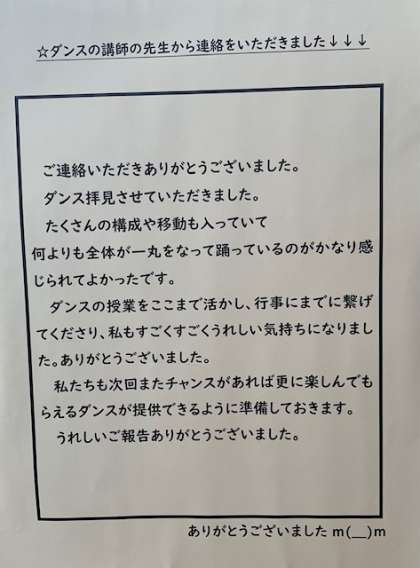 ☆ダンスの講師の先生から連絡をいただきました↓↓↓
ご連絡いただきありがとうございました。
ダンス拝見させていただきました。
たくさんの構成や移動も入っていて
何よりも全体が一丸をなって踊っているのがかなり感
じられてよかったです。
ダンスの授業をここまで活かし、行事にまでに繋げ
てくださり、私もすごくすごくうれしい気持ちになりまし
た。ありがとうございました。
私たちも次回またチャンスがあれば更に楽しんでも
らえるダンスが提供できるように準備しておきます。
うれしいご報告ありがとうございました。
ありがとうございました m(__)m